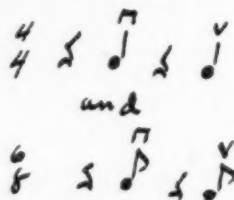 4
4
and
6
8